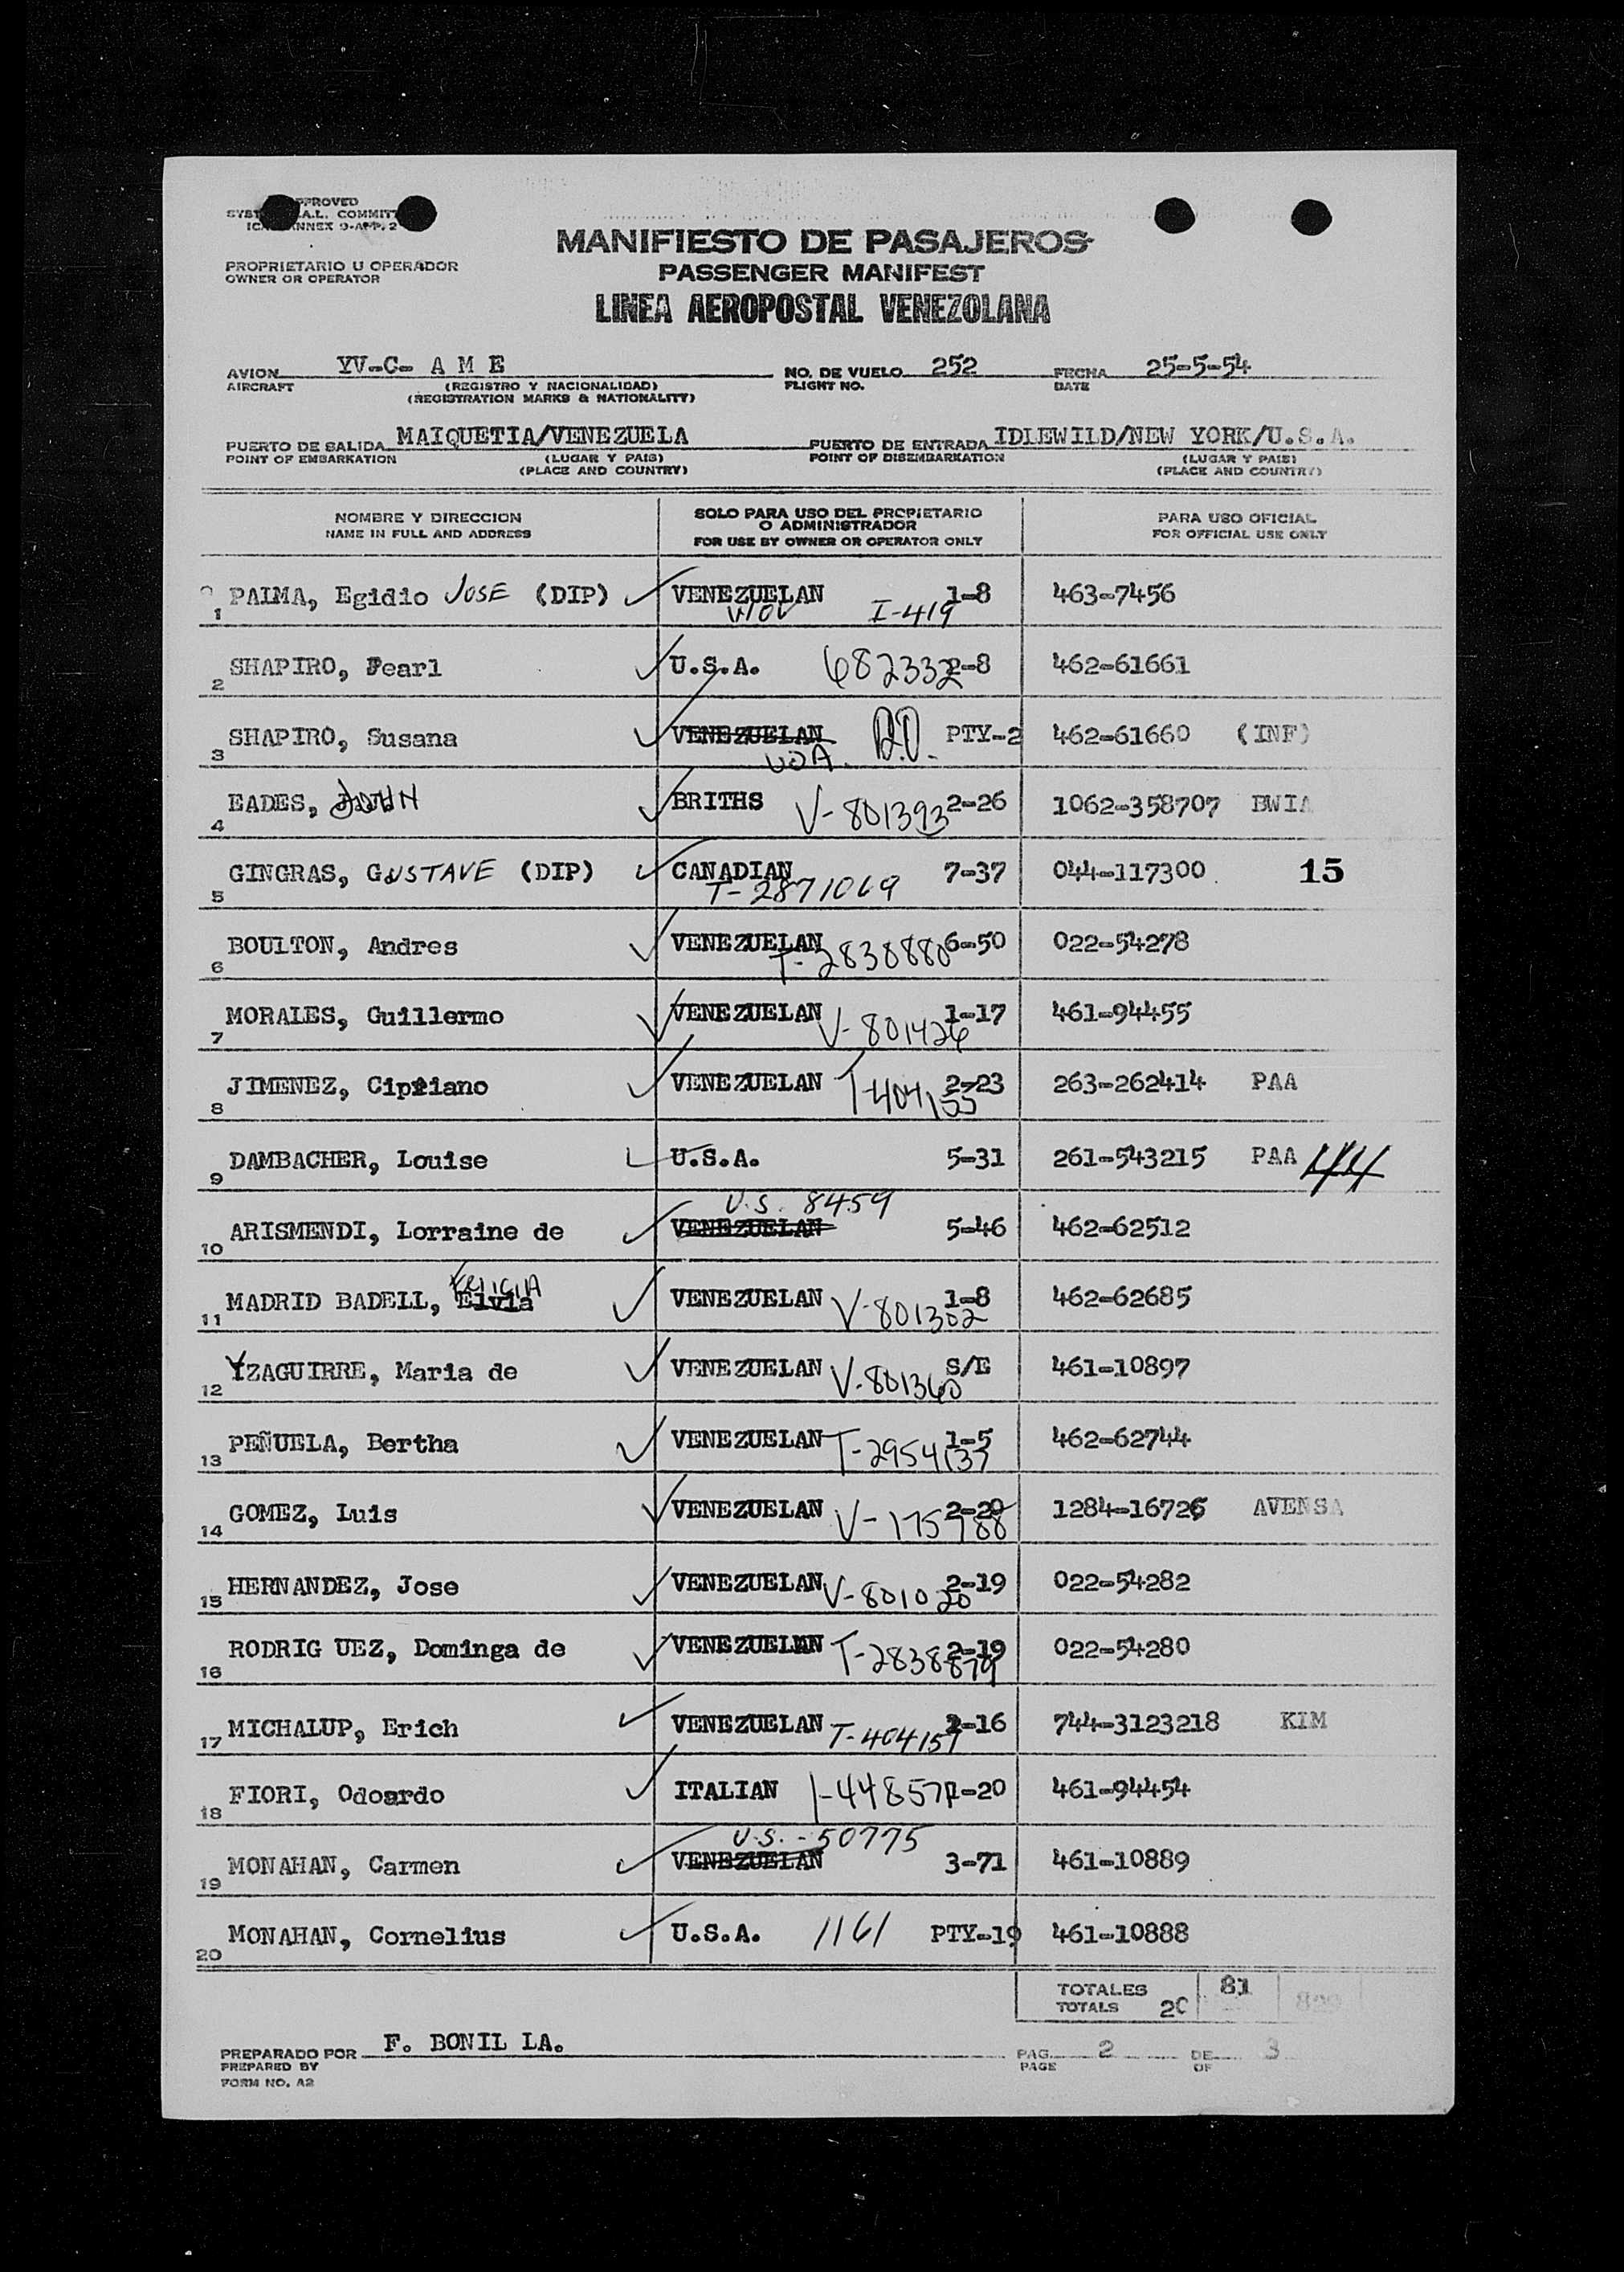 PPROVED
SYST A.L. COMMITT
ICA ANNEX 9-APP. 2
PROPRIETARIO U OPERADOR
OWNER OR OPERATOR
MANIFIESTO DE PASAJEROS
PASSENGER MANIFEST
LINEA AEROPOSTAL VENEZOLANA
AVION YV-C- A M E NO. DE VUELO 252 FECHA 25-5-54
AIRCRAFT (REGISTRO Y NACIONALIDAD) FLIGHT NO. DATE
(REGISTRATION MARKS & NATIONALITY)
PUERTO DE SALIDA MAIQUETIA/VENEZUELA PUERTO DE ENTRADA IDLEWILD/NEW YORK/U.S.A.
POINT OF EMBARKATION (LUGAR Y PAIS) POINT OF DISEMBARKATION (LUGAR Y PAIS)
(PLACE AND COUNTRY) (PLACE AND COUNTRY)
NOMBRE Y DIRECCION SOLO PARA USO DEL PROPIETARIO PARA USO OFICIAL
NAME IN FULL AND ADDRESS O ADMINISTRADOR FOR OFFICIAL USE ONLY
FOR USE BY OWNER OR OPERATOR ONLY
1 PAIMA, Egidio JOSE (DIP) VENEZUELAN 1-8 463-7456
I-419
2 SHAPIRO, Pearl U.S.A. 682332 2-8 462-61661
3 SHAPIRO, Susana VENEZUELAN PTY-2 462-61660 (INF)
4 EADES, JOHN BRITHS V-801393 2-26 1062-358707 BWIA
5 GINGRAS, GUSTAVE (DIP) CANADIAN 7-37 044-117300 15
T-2871069
6 BOULTON, Andres VENEZUELAN 6-50 022-54278
T-2838880
7 MORALES, Guillermo VENEZUELAN 1-17 461-94455
V-801426
8 JIMENEZ, Cipriano VENEZUELAN 2-23 263-262414 PAA
T-404155
9 DAMBACHER, Louise U.S.A. 5-31 261-543215 PAA 44
U.S. 8459
10 ARISMENDI, Lorraine de VENEZUELAN 5-46 462-62512
FELICIA
11 MADRID BADELL, Elvia VENEZUELAN 1-8 462-62685
V-801302
12 YZAGUIRRE, Maria de VENEZUELAN S/E 461-10897
V-801360
13 PEÑUELA, Bertha VENEZUELAN 1-5 462-62744
T-2954137
14 GOMEZ, Luis VENEZUELAN 2-20 1284-16726 AVENSA
V-175788
15 HERNANDEZ, Jose VENEZUELAN 2-19 022-54282
V-801020
16 RODRIG UEZ, Dominga de VENEZUELAN 2-19 022-54280
T-2838879
17 MICHALUP, Erich VENEZUELAN 2-16 744-3123218 KIM
T-404157
18 FIORI, Odoardo ITALIAN 1-20 461-94454
U.S. - 50775
19 MONAHAN, Carmen VENEZUELAN 3-71 461-10889
20 MONAHAN, Cornelius U.S.A. 1161 PTY-19 461-10888
TOTALES 81
TOTALS 20
PREPARADO POR F. BONIL LA. PAG. 2 DE 3
PREPARED BY PAGE OF
FORM NO. A2